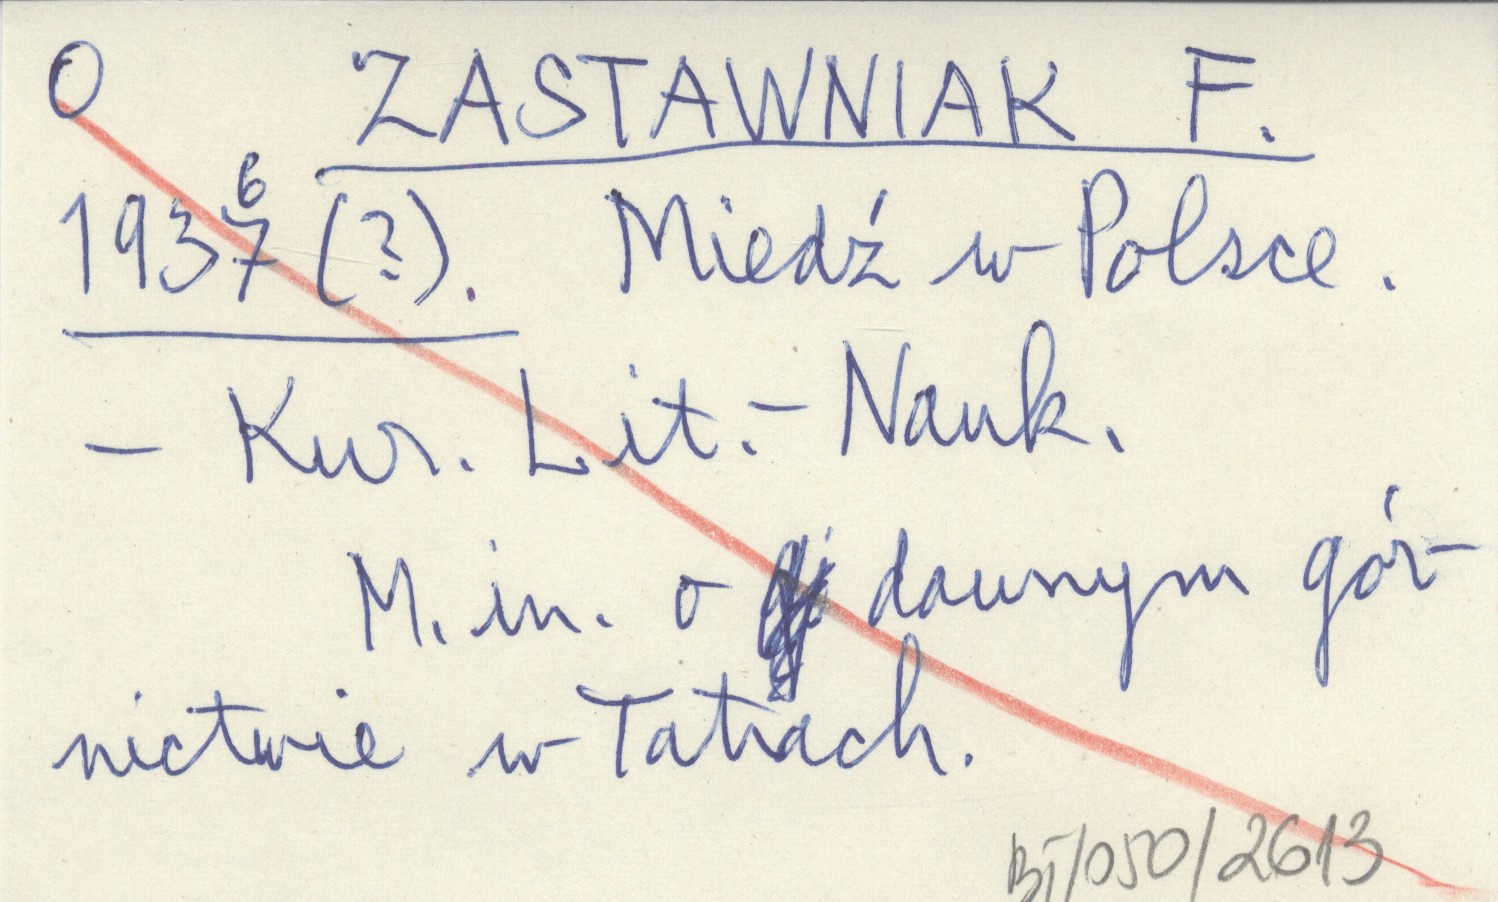 O ZASTAWNIAK F.
6
1937 (?). Miedź w Polsce.
- Kur. Lit.- Nauk.
M. in. o dawnym gór-
nictwie w Tatrach.
BJ/050/2613